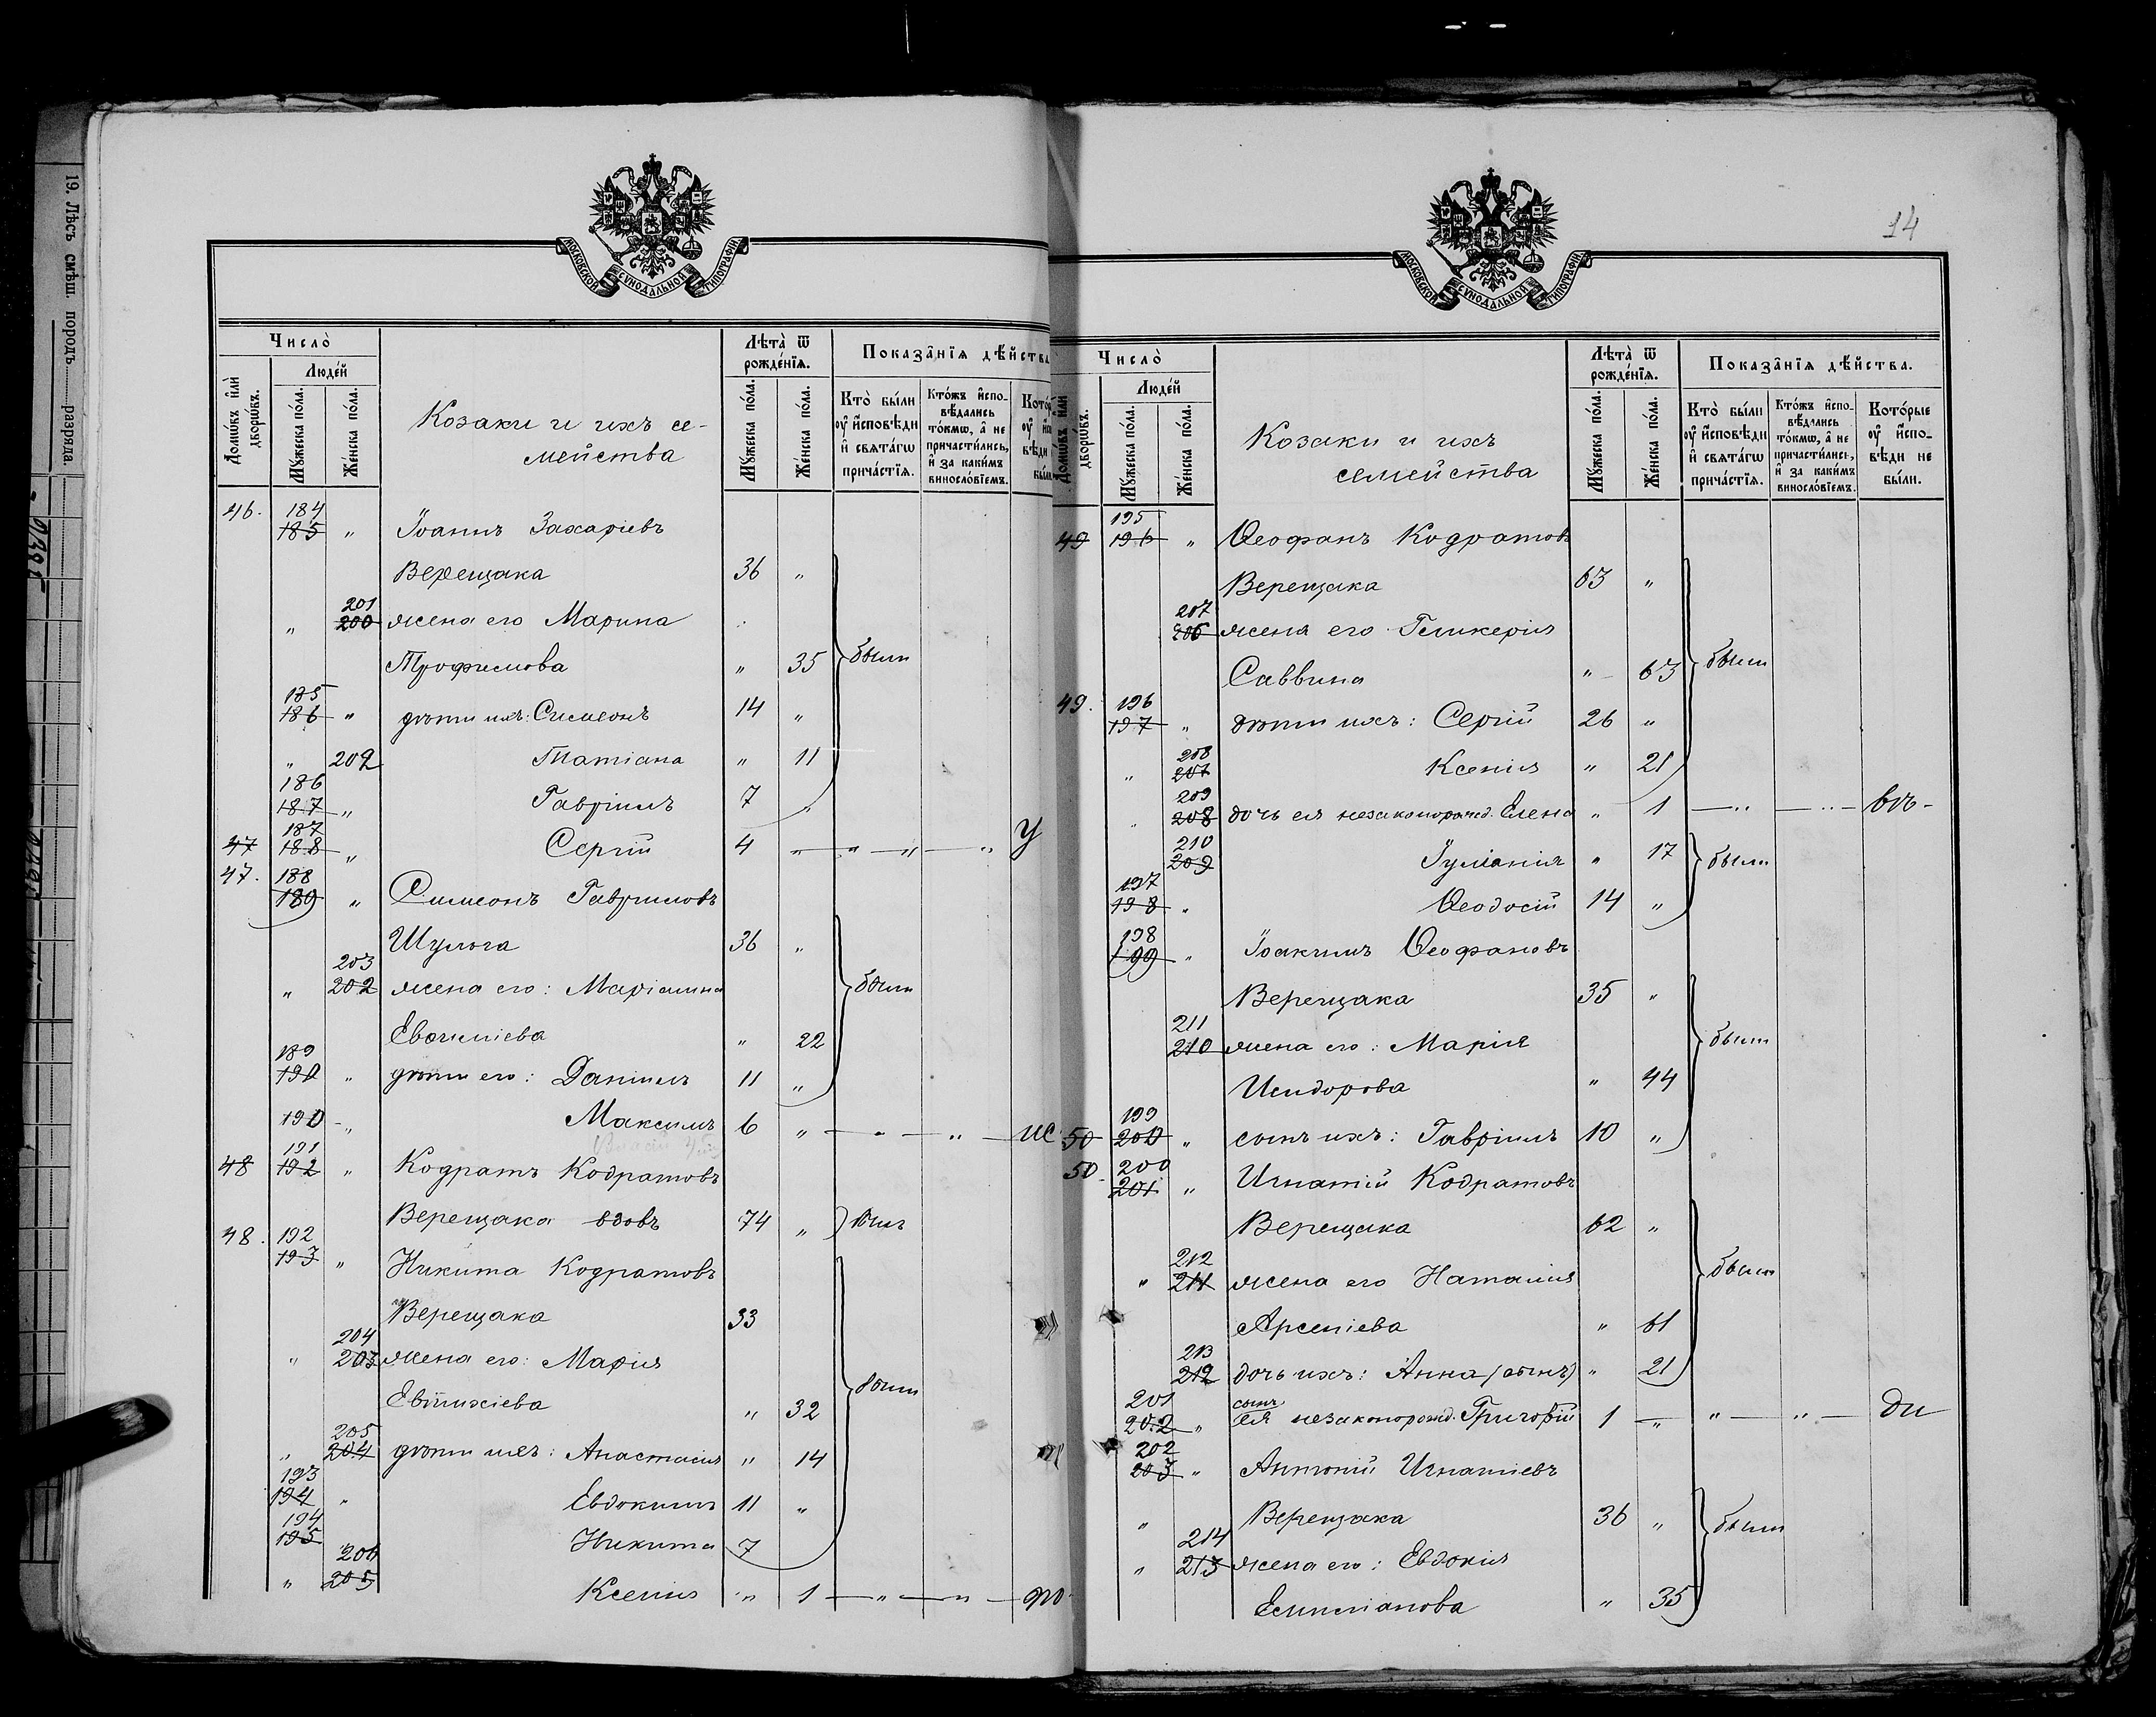 19. Лѣсъ смѣш. породъ ........ разряда.
МОСКОВСКОЙ СѴНОДАЛЬНОЙ ТИПОГРАФІИ
Число̀
Домѡ́въ и҆лѝ дворѡ́въ.
Люде́й
Мꙋ́жеска по́ла.
Же́нска по́ла.
Козаки и ихъ се-
мейства
Лѣта̀ ѿ рожде́нїѧ.
Мꙋ́жеска по́ла.
Же́нска по́ла.
Показа̑нїѧ дѣ́йства
Кто̀ бы́ли ᲂу҆ и҆сповѣ́ди и҆ свѧта́гѡ прича́стїѧ.
Кто́жъ и҆спо-вѣ́дались то́кмѡ, а҆ не причасти́лись, и҆ за каки́мъ винословїемъ.
46. 184 185 " Іоаннъ Захаріевъ
Верещака 36 "
" 201 200 жена его Марина
Трофимова " 35 были
185 186 " дѣти ихъ: Симеонъ 14 "
" 202 Татіана " 11
186 187 " Гавріилъ 7 "
47 187 188 " Сергій 4 " " " " у
47. 188 189 " Симеонъ Гавриловъ
Шулога 36 "
" 203 202 жена его: Маріамна были
Евѳиміева " 22
189 190 " дѣти его: Даніилъ 11 "
190 " Максимъ 6 " " "
48 191 192 " Кодратъ Кодратовъ
Верещака вдовъ 74 " былъ
48. 192 193 " Никита Кодратовъ
Верещака 33
" 204 203 жена его: Марія
Евтихіева " 32 были
" 205 204 дѣти ихъ: Анастасія " 14
193 194 " Евдокимъ 11 "
194 195 Никита 7
" 206 205 Ксенія " 1 " "
14
МОСКОВСКОЙ СѴНОДАЛЬНОЙ ТИПОГРАФІИ
Число̀
Домѡ́въ и҆лѝ дворѡ́въ.
Люде́й
Мꙋ́жеска по́ла.
Же́нска по́ла.
Козаки и ихъ
семейства
Лѣта̀ ѿ рожде́нїѧ.
Мꙋ́жеска по́ла.
Же́нска по́ла.
Показа̑нїѧ дѣ́йства.
Кто̀ бы́ли ᲂу҆ и҆сповѣ́ди и҆ свѧта́гѡ прича́стїѧ.
Кто́жъ и҆спо-вѣ́дались то́кмѡ, а҆ не причасти́лись, и҆ за каки́мъ винословїемъ.
Кото́рые ᲂу҆ и҆спо-вѣ́ди не бы́ли.
49 195 196 " Ѳеофанъ Кодратовъ
Верещака 63 "
207 206 жена его Гликерія
Саввина " 63 были
49. 196 197 " дѣти ихъ: Сергій 26 "
" 208 207 Ксенія " 21
" 209 208 дочь ея незаконорожд. Елена " 1 " "
210 209 Іуліанія " 17 были
197 198 " Ѳеодосій 14 "
198 199 " Іоакимъ Ѳеофановъ
Верещака 35 "
211 210 жена его: Марія были
Исидорова " 44
50 199 200 " сынъ ихъ: Гавріилъ 10 "
50. 200 201 " Игнатій Кодратовъ
Верещака 62 "
" 212 211 жена его Наталія были
Арсеніева " 61
213 212 дочь ихъ: Анна " 21
201 202 " сынъ ея незаконорожд. Григорій 1 " " "
202 203 " Антоній Игнатіевъ
" Верещака 36 " были
" 214 213 жена его: Евдокія
Емиліанова " 35